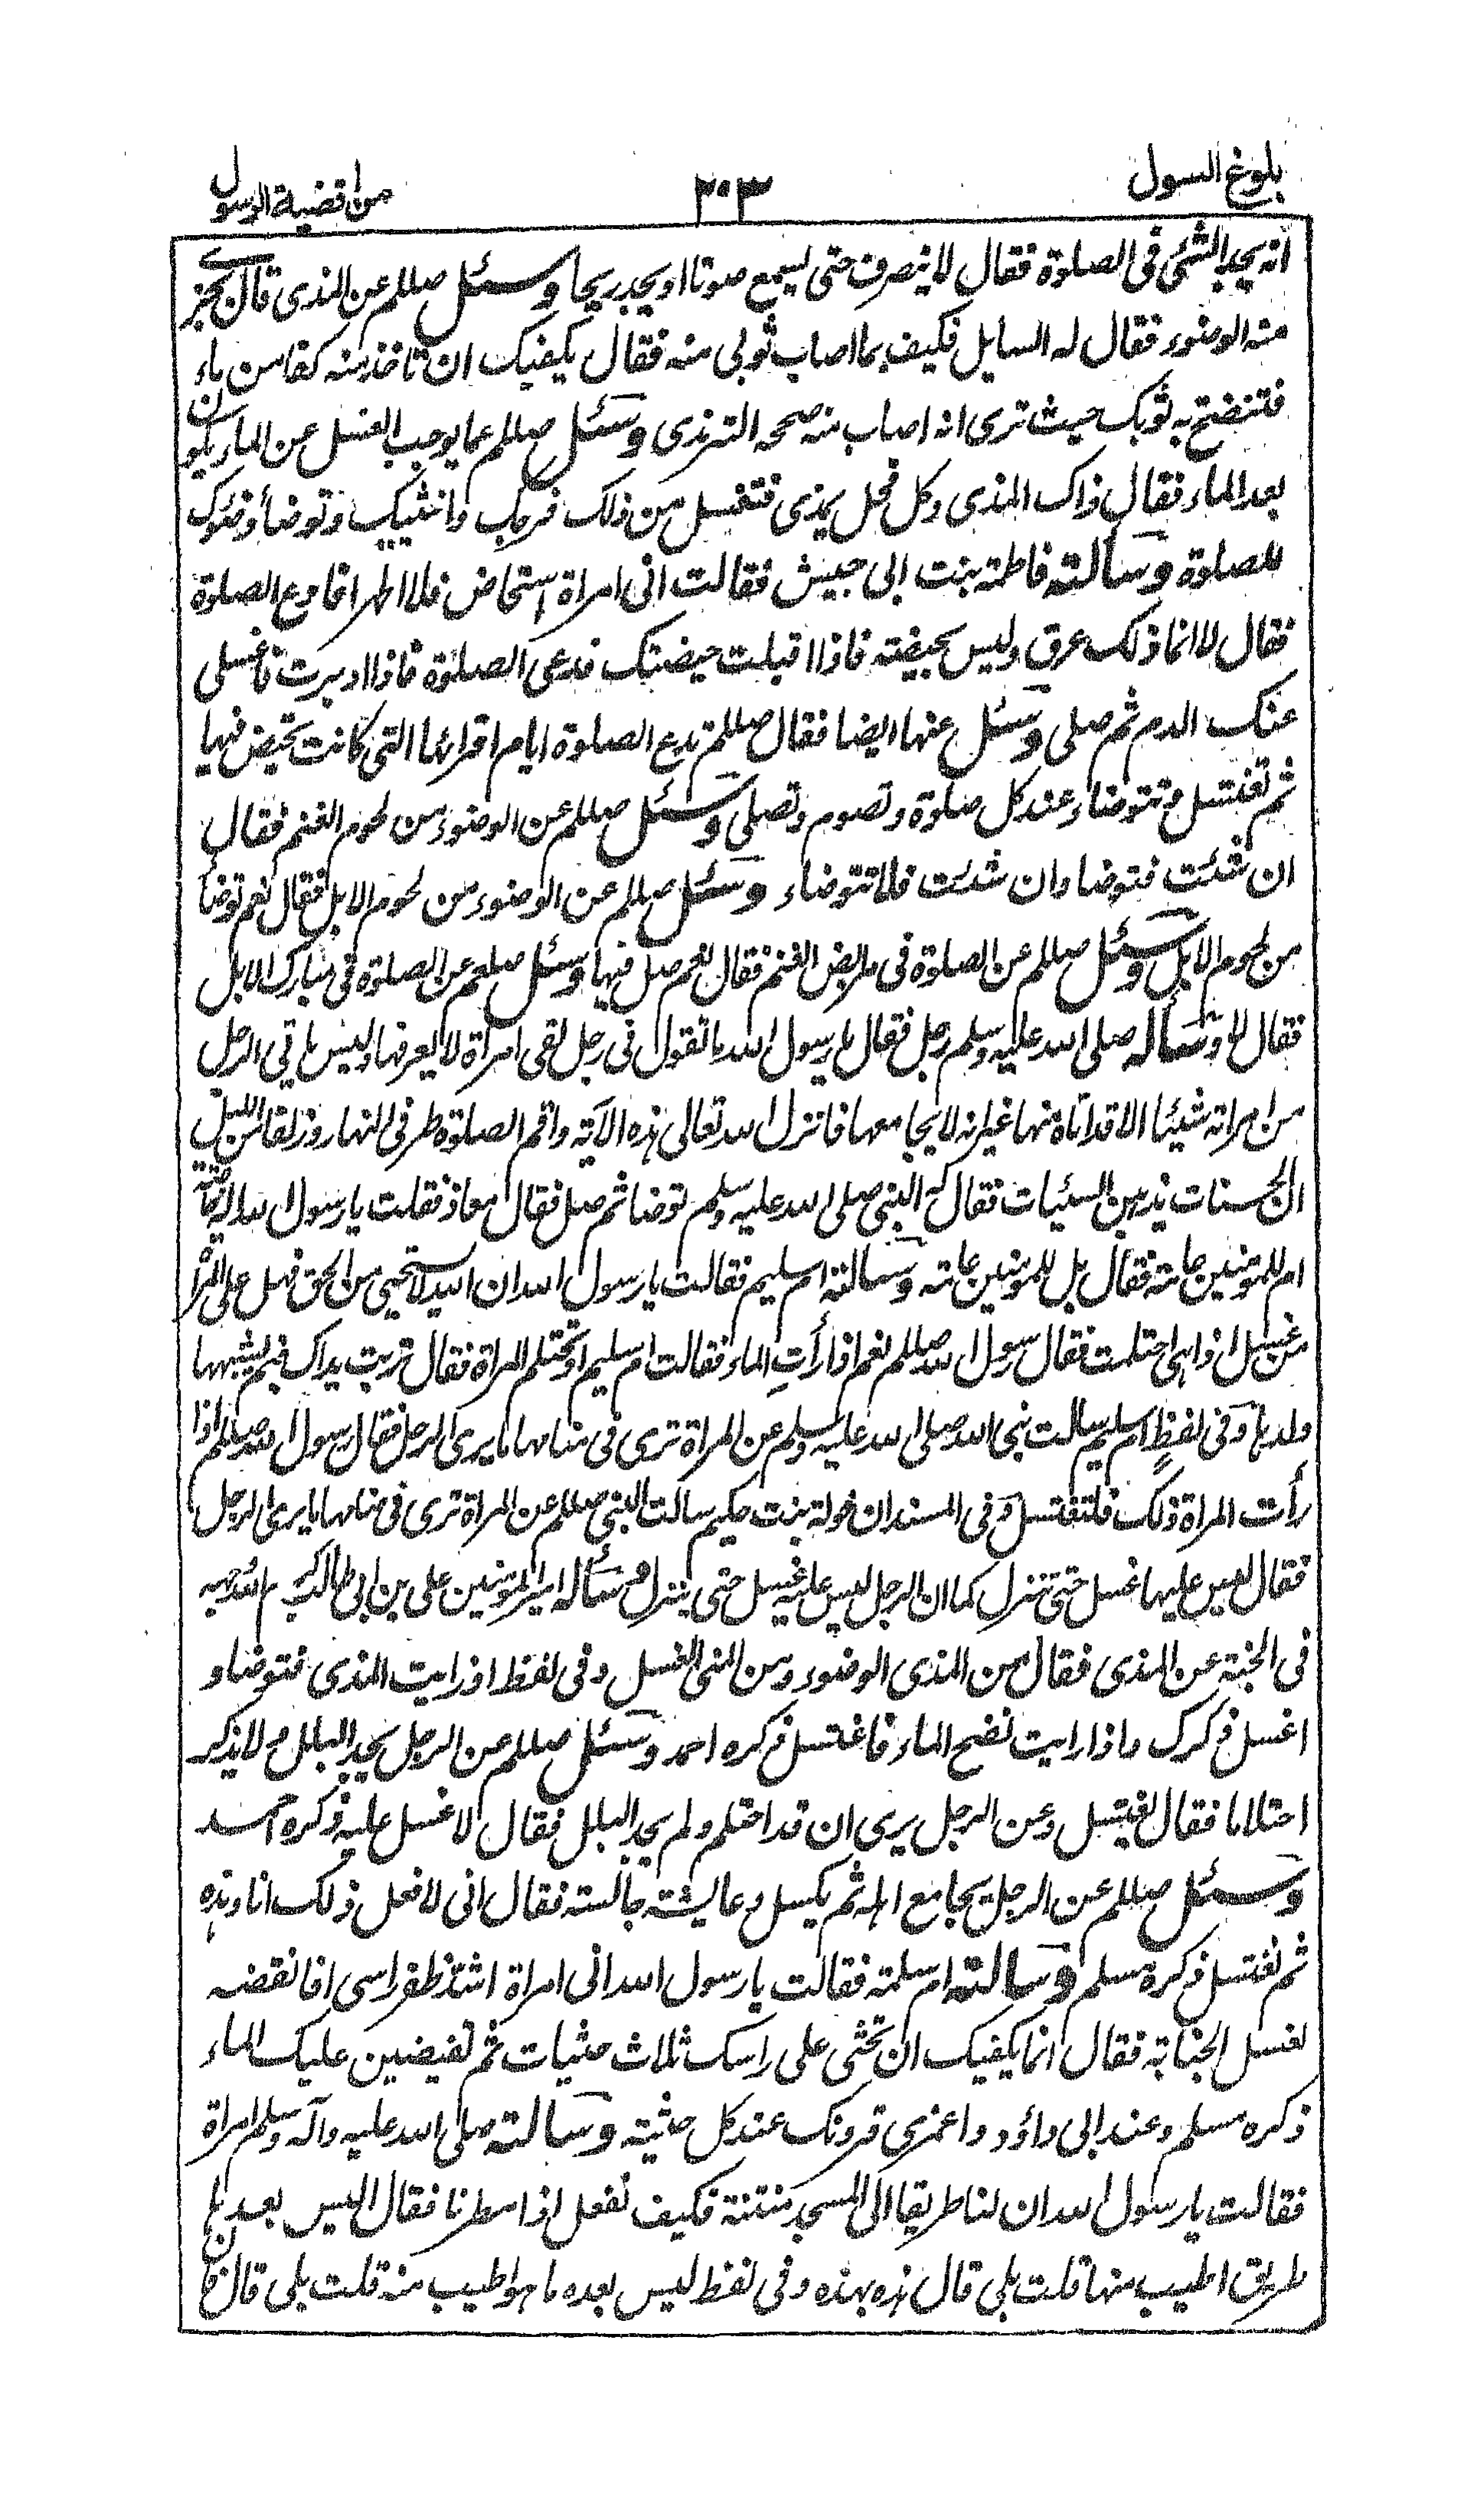 بلوغ السول
٣٠٣
من اقضية الرسول
انه يجد الشئ فى الصلوة فقال لا ينصرف حتى يسمع صوتا او يجد ريحا وسئل صللم عن المذى قال يجزى
منه الوضوء فقال له السايل فكيف بما اصاب ثوبى منه فقال يكفيك ان تاخذ منه كفا من ماء
فتنضح به ثوبك حيث ترى انه اصاب منه صححه الترمذى وسئل صللم عما يوجب الغسل عن الماء يكون
بعد الماء فقال ذاك المذى وكل فحل يمذى فتغسل من ذلك فرجك وانثييك وتوضأ وضوئك
للصلوة وسالته فاطمة بنت ابى حبيش فقالت انى امراة استحاض فلا اطهر افادع الصلوة
فقال لا انما ذلك عرق وليس بحيضة فاذا اقبلت حيضتك فدعى الصلوة فاذا ادبرت فاغسلى
عنك الدم ثم صلى وسئل عنها ايضا فقال صللم تدع الصلوة ايام اقرائها التى كانت تحيض فيها
ثم تغتسل وتتوضاء عند كل صلوة وتصوم وتصلى وسئل صللم عن الوضوء من لحوم الغنم فقال
ان شئت فتوضا وان شئت فلا تتوضاء وسئل صللم عن الوضوء من لحوم الابل فقال نعم توضأ
من لحوم الابل وسئل صللم عن الصلوة فى مرابض الغنم فقال نعم صل فيها وسئل صلعم عن الصلوة فى مبارك الابل
فقال لا وسأله صلى الله عليه وسلم رجل فقال يا رسول الله ما تقول فى رجل لقى امراة لا يعرفها وليس ياتى الرجل
من امراته شيئا الا قد اتاه منها غير انه لا يجامعها فانزل الله تعالى هذه الآية واقم الصلوة طرفى النهار وزلفا من الليل
ان الحسنات يذهبن السئيات فقال له النبى صلى الله عليه وسلم توضا ثم صل فقال معاذ فقلت يا رسول الله اله خاصة
ام للمومنين عامة فقال بل للمومنين عامة وسالته ام سليم فقالت يا رسول الله ان الله لا يستحيى من الحق فهل على المرأة
من غسل اذا هى احتلمت فقال رسول الله صللم نعم اذا رأت الماء فقالت ام سليم او تحتلم المراة فقال تربت يداك فبم يشبهها
ولدها وفى لفظ ام سليم سالت نبى الله صلى الله عليه وسلم عن المراة ترى فى منامها ما يرى الرجل فقال رسول الله صللم اذا
رأت المراة ذلك فلتغتسل وفى المسند ان خولة بنت حكيم سالت النبى صللم عن المراة ترى فى منامها ما يرى الرجل
فقال ليس عليها غسل حتى تنزل كما ان الرجل ليس عليه غسل حتى ينزل وسأله امير المؤمنين على بن ابى طالب كرم الله وجهه
فى الجنة عن المذى فقال من المذى الوضوء ومن المنى الغسل وفى لفظ اذا رايت المذى فتوضا و
اغسل ذكرك واذا رايت نضح الماء فاغتسل ذكره احمد وسئل صللم عن الرجل يجد البلل ولا يذكر
احتلاما فقال يغتسل وعن الرجل يرى ان قد احتلم ولم يجد البلل فقال لا غسل عليه ذكره احمد
وسئل صللم عن الرجل يجامع اهله ثم يكسل وعايشة جالسة فقال انى لافعل ذلك انا وهذه
ثم نغتسل ذكره مسلم وسالته ام سلمة فقالت يا رسول الله انى امراة اشد ظفر راسى افانقضه
لغسل الجنابة فقال انما يكفيك ان تحثى على راسك ثلاث حثيات ثم تفيضين عليك الماء
ذكره مسلم وعند ابى داؤد واغمزى قرونك عند كل حثية وسالته صلى الله عليه وآله وسلم امراة
فقالت يا رسول الله ان لنا طريقا الى المسجد منتنة فكيف نفعل اذا مطرنا فقال اليس بعدها
طريق اطيب منها قلت بلى قال هذه بهذه وفى لفظ ليس بعده ما هو اطيب منه قلت بلى قال فان